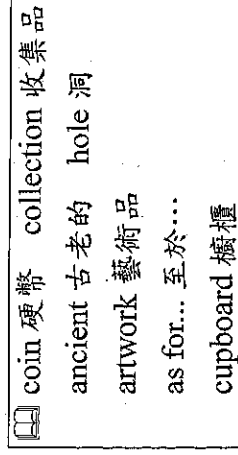 coin 硬幣 collection 收集品
ancient 古老的 hole 洞
artwork 藝術品
as for... 至於…
cupboard 櫥櫃